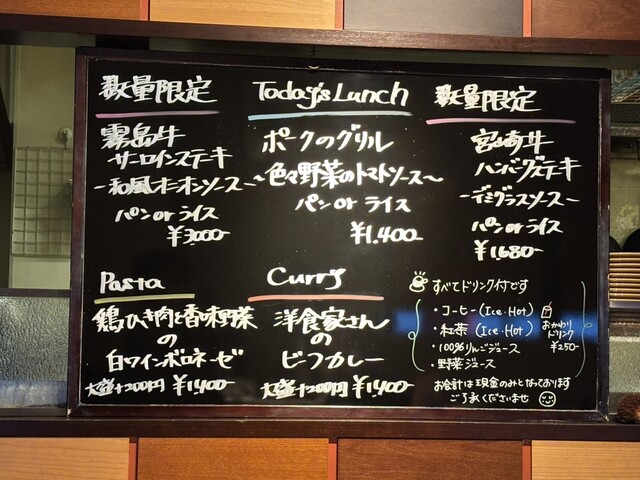 数量限定
霧島牛
サーロインステーキ
-和風オニオンソース-
パン or ライス
¥3,000-
Today's Lunch
ポークのグリル
～色々野菜のトマトソース～
パン or ライス
¥1,400-
数量限定
宮崎牛
ハンバーグステーキ
-デミグラスソース-
パン or ライス
¥1,680-
Pasta
鶏ひき肉と香味野菜
の
白ワインボロネーゼ
大盛+200円 ¥1,400-
Curry
洋食家さん
の
ビーフカレー
大盛+200円 ¥1,400-
すべてドリンク付です
・コーヒー (Ice・Hot)
・紅茶 (Ice・Hot)
・100%りんごジュース
・野菜ジュース
おかわり
ドリンク
¥250-
お会計は現金のみとなっております
ご了承くださいませ